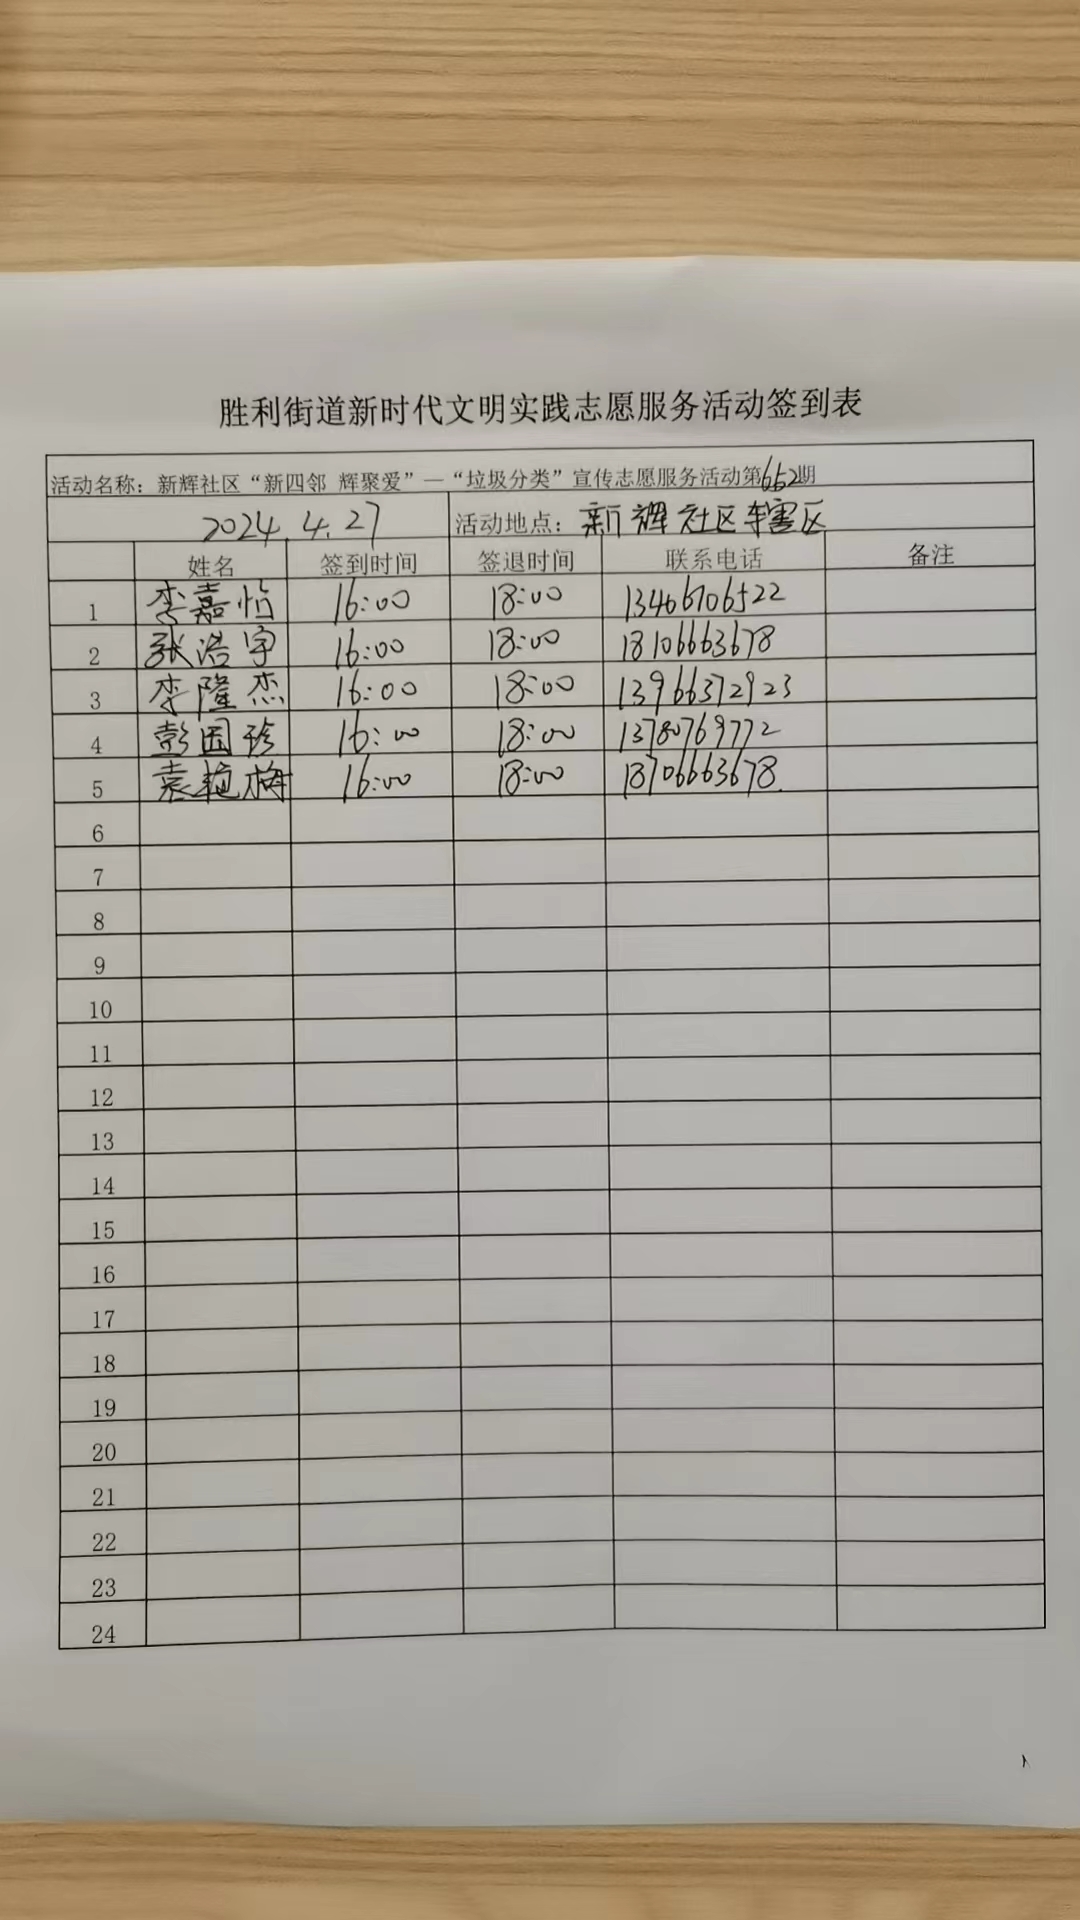 胜利街道新时代文明实践志愿服务活动签到表
活动名称：新辉社区“新四邻 辉聚爱”—“垃圾分类”宣传志愿服务活动第652期
2024.4.27 活动地点：新辉社区辖区
姓名 签到时间 签退时间 联系电话 备注
1 李嘉怡 16:00 18:00 13406706522
2 张浩宇 16:00 18:00 18106663678
3 李隆杰 16:00 18:00 13966372923
4 彭国珍 16:00 18:00 13780769772
5 袁艳梅 16:00 18:00 18706663678
6
7
8
9
10
11
12
13
14
15
16
17
18
19
20
21
22
23
24